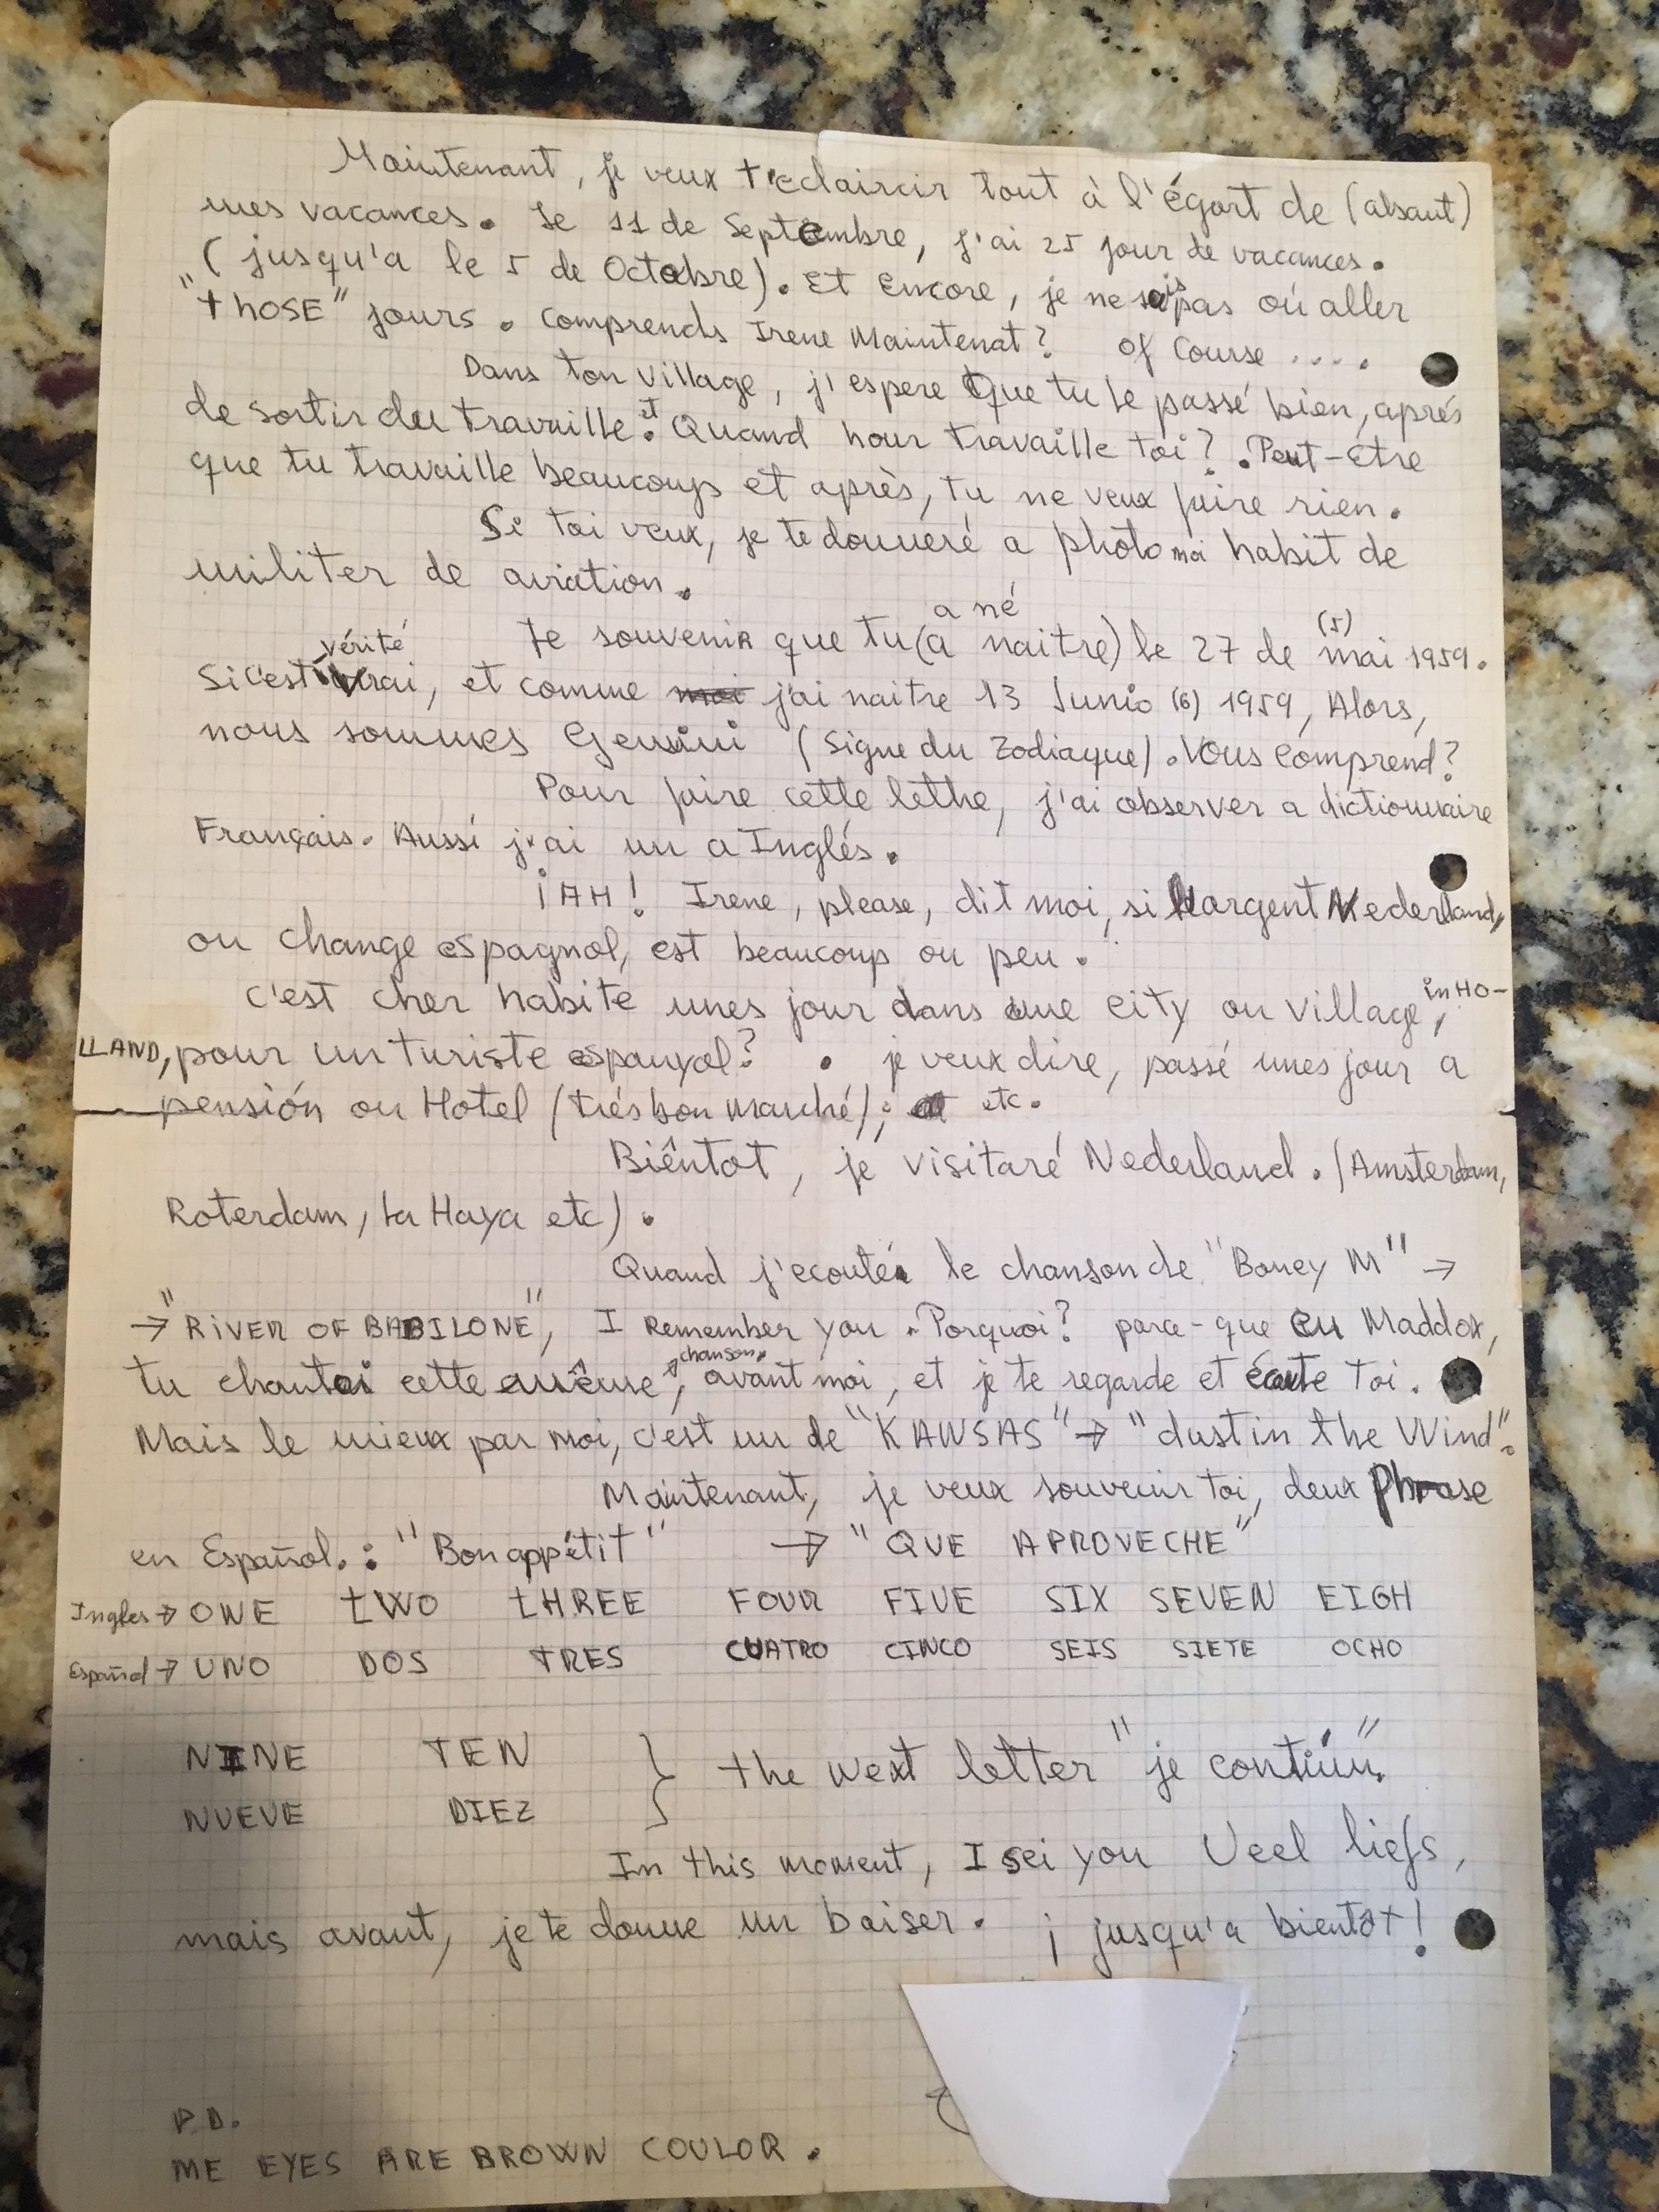 Maintenant, je veux t'eclaircir tout à l'égart de (absaut)
mes vacances. Le 11 de Septembre, j'ai 25 jour de vacances.
(jusqu'a le 5 de Octobre). Et Encore, je ne sais pas où aller
"thOSE" jours. comprends Irene Maintenat? of Course ....
Dans ton village, j'espere Que tu le passé bien, aprés
de sortir du travaille. et Quand hour travaille toi?. Peut-être
que tu travaille beaucoup et après, tu ne veux faire rien.
Si toi veux, je te donneré a photo moi habit de
militer de aviation.
a né
Je souvenir que tu (a naitre) le 27 de mai (5) 1959.
vérité
Si c'est vrai, et comme moi j'ai naitre 13 Junio (6) 1959, Alors,
nous sommes Gemini (Signe du Zodiaque). Vous comprend?
Pour faire cette lethe, j'ai observer a dictionnaire
Français. Aussi j'ai un a Inglés.
¡AH! Irene, please, dit moi, si l'argent Nederland,
ou change espagnol, est beaucoup ou peu.
c'est cher habite unes jour dans une city ou village, in HO-
LLAND, pour un turiste espanyol? . je veux dire, passé unes jour a
pensión ou Hotel (trés bon marché), etc.
Biêntot, je visitaré Nederland. (Amsterdam,
Roterdam, La Haya etc).
Quand j'ecouté le chanson de "Boney M" →
→ "RiVER OF BABILONE", I Remember you. Porquoi? parce-que en Maddox,
chanson.
tu chantai cette même, avant moi, et je te regarde et écoute toi.
Mais le mieux par moi, c'est un de "KANSAS" → "dust in the Wind".
Maintenant, je veux souvenir toi, deux Phrase
en Español. : "Bon appétit" → "QUE APROVECHE"
Ingles → ONE tWO tHREE FOUR FIVE SIX SEVEN EIGH
Español → UNO DOS TRES CUATRO CINCO SEIS SIETE OCHO
NINE TEN } the next letter "je contiún"
NUEVE DIEZ
In this moment, I sei you Veel liefs,
mais avant, je te donne un baiser. ¡jusqu'a bientôt!
P.D.
ME EYES ARE BROWN COULOR.